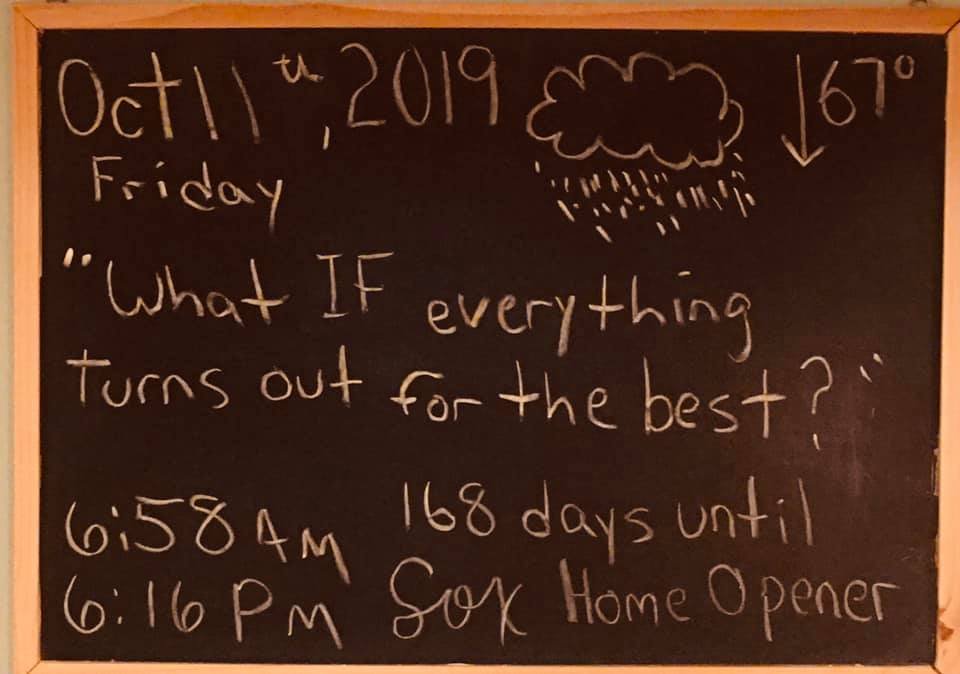 Oct 11th, 2019 ↓67°
Friday
"What IF everything
Turns out for the best?"
6:58 AM 168 days until
6:16 PM Sox Home Opener